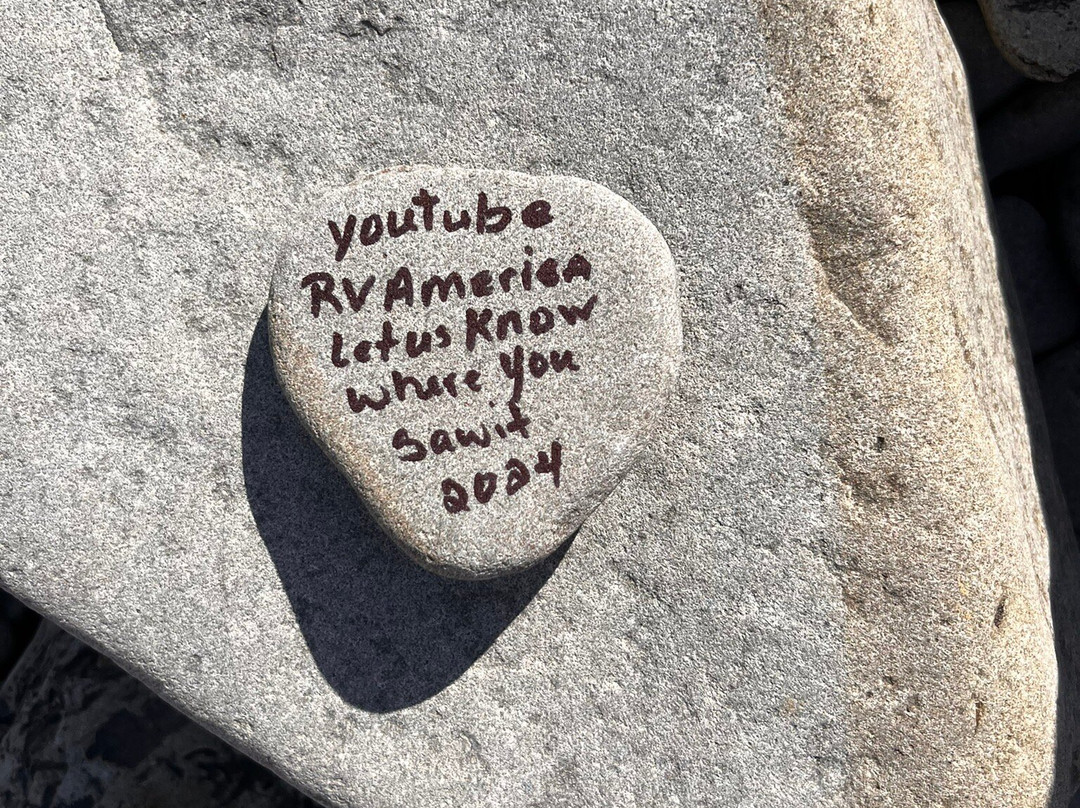 youtube
RV America
Let us Know
where you
saw it
2024